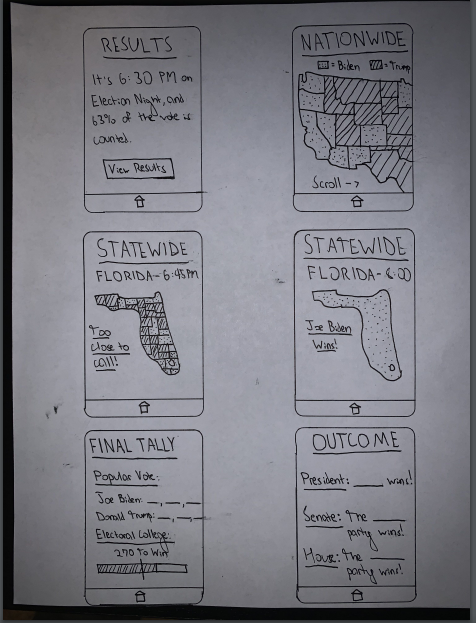 RESULTS
It's 6:30 PM on
Election Night, and
63% of the vote is
counted.
View Results
NATIONWIDE
= Biden = Trump
Scroll ->
STATEWIDE
FLORIDA - 6:45 PM
Too
close to
call!
STATEWIDE
FLORIDA - 8:00
Joe Biden
Wins!
FINAL TALLY
Popular Vote:
Joe Biden: __,__,__
Donald Trump: __,__,__
Electoral College:
270 To Win
OUTCOME
President: ____ wins!
Senate: The ____
party wins!
House: The ____
party wins!